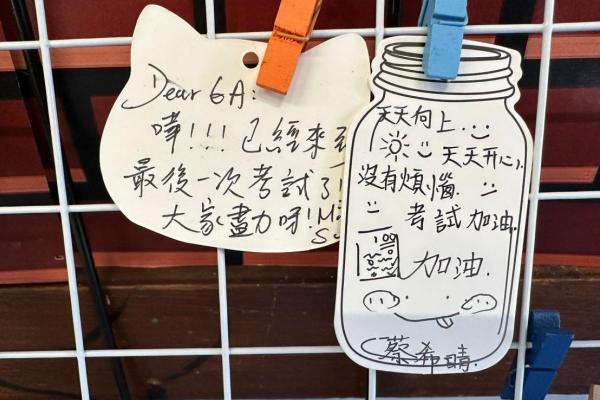 Dear 6A:
嘩!!! 已經來到
最後一次考試了!
大家盡力呀!
天天向上.
天天開心.
沒有煩惱.
考試加油.
100
加油.
蔡希晴.